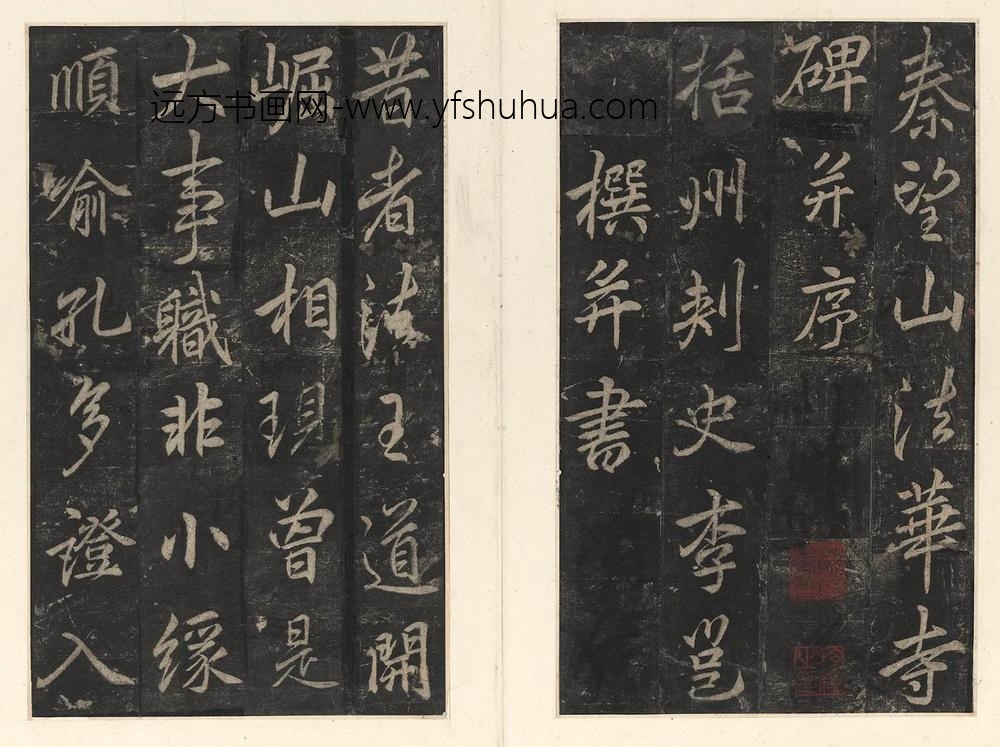 秦望山法華寺
碑并序
括州刺史李邕
撰并書
昔者法王道開
崛山相現曾是
大事職非小緣
順喻孔多證入
远方书画网-www.yfshuhua.com